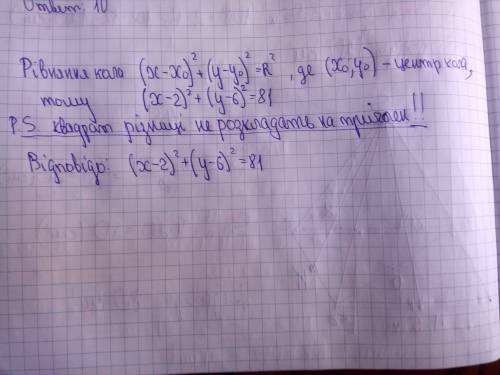 Ответ: 10
Рівняння кола (x-x₀)²+(y-y₀)²=R², де (x₀,y₀) - центр кола,
тому (x-2)²+(y-6)²=81
P.S. квадрат різниці не розкладать на тричлен!!
Відповідь: (x-2)²+(y-6)²=81